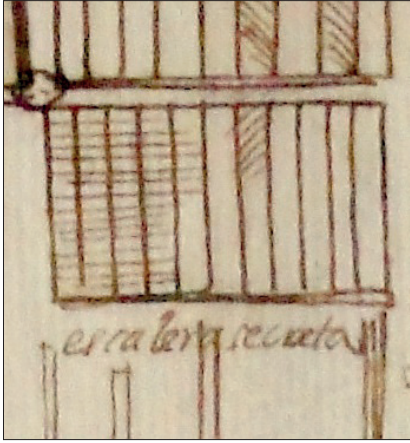 escalera secreta